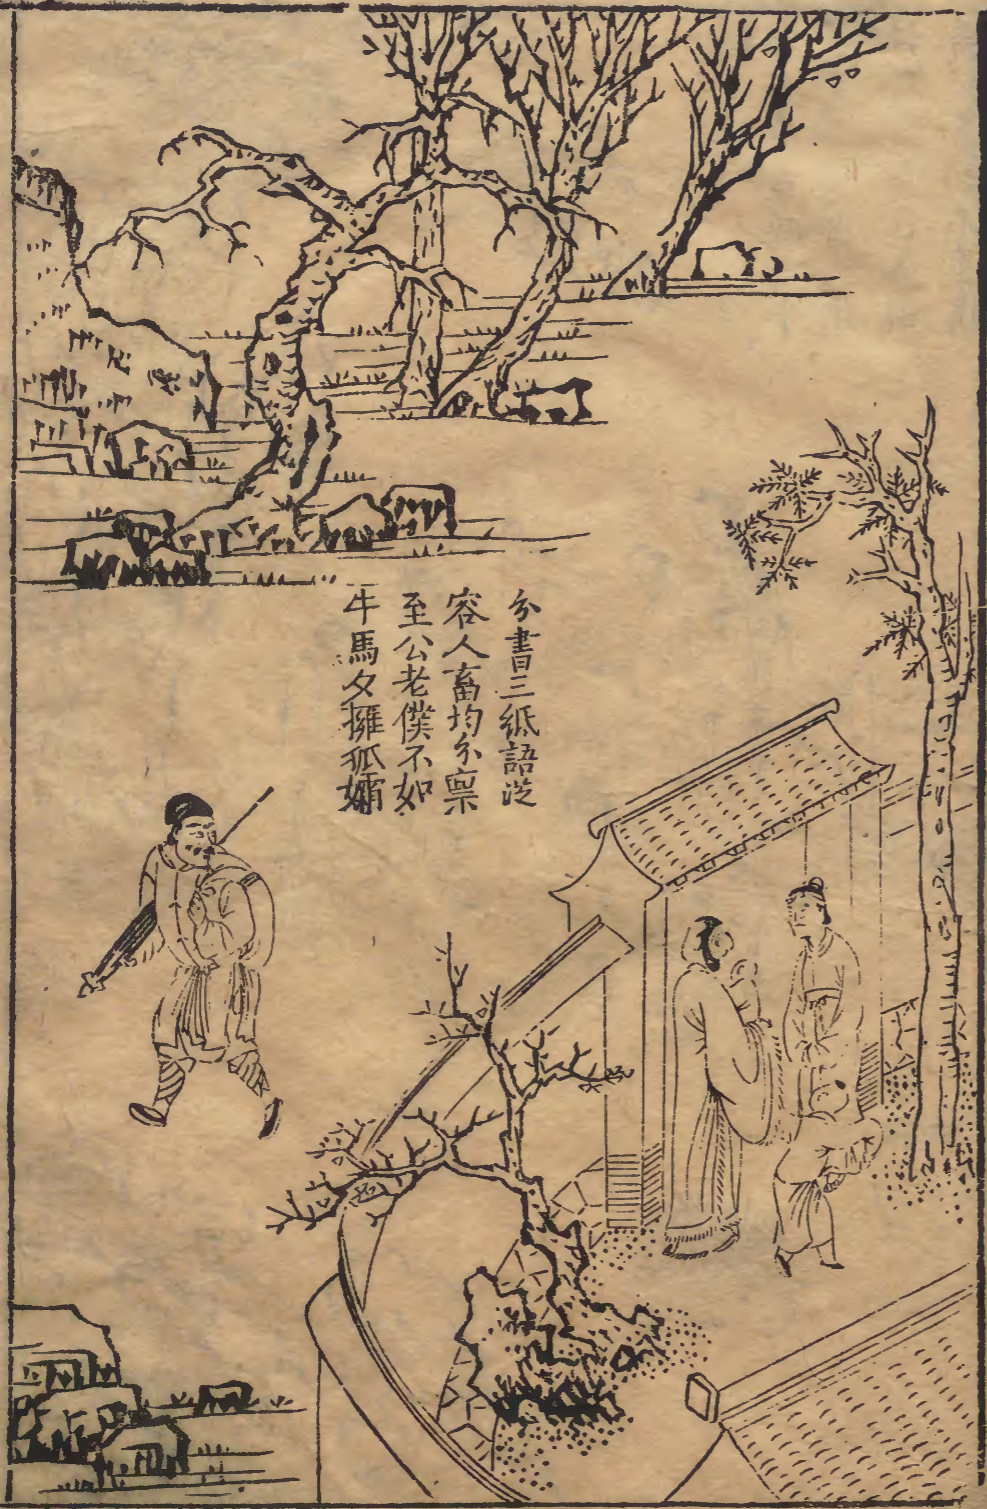 分書三紙語從
容人畜均分稟
至公老僕不如
牛馬夕擁孤孀